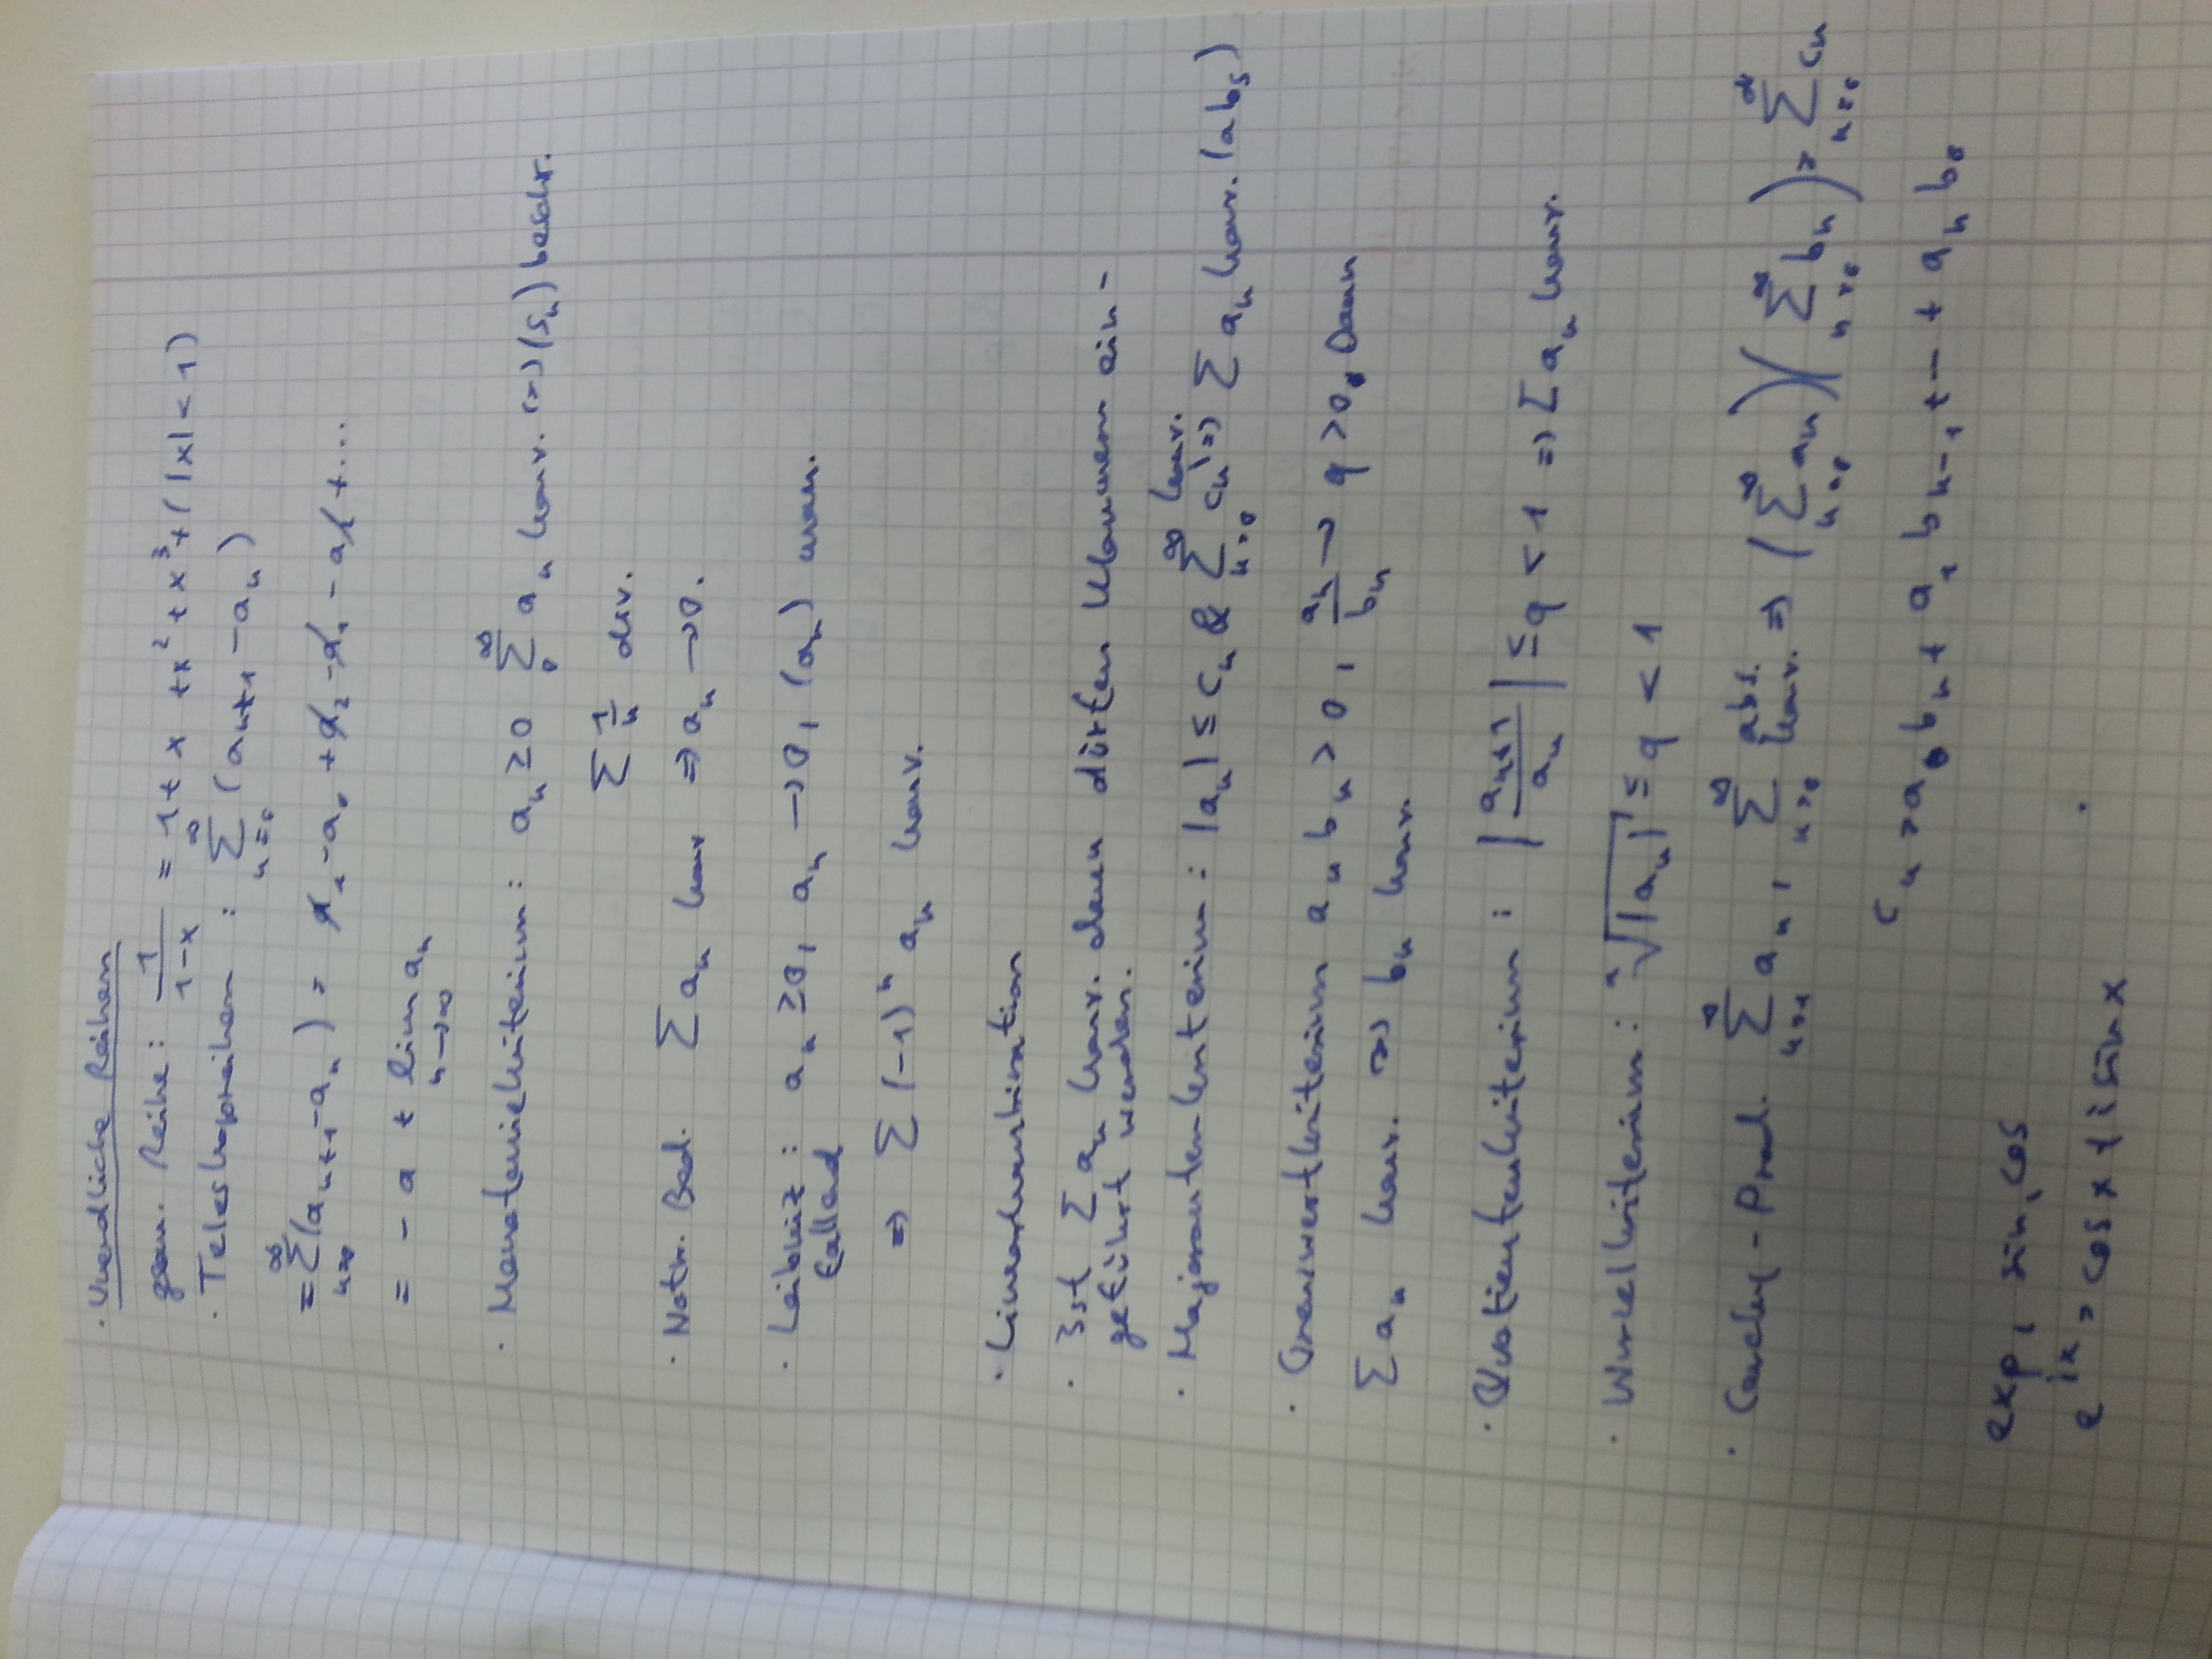 · Unendliche Reihen
geom. Reihe: 1/(1-x) = 1 + x + x² + x³ + (|x| < 1)
· Teleskopreihen: ∑_{n=0}^∞ (a_{n+1} - a_n)
= ∑_{n=0}^∞ (a_{n+1} - a_n) = a_1 - a_0 + a_2 - a_1 - a/ + ...
= - a + lim_{n→∞} a_n
· Monotoniekriterium: a_n ≥ 0 ∑_0^∞ a_n konv. (=) (s_n) beschr.
∑ 1/n div.
· Notw. Bed. ∑ a_n konv ⇒ a_n → 0.
· Leibniz: a_n ≥ 0, a_n → 0, (a_n) mon.
fallend
⇒ ∑ (-1)^n a_n konv.
· Linearkombination
· Ist ∑ a_n konv. dann dürfen Klammern ein-
geführt werden.
· Majorantenkriterium: |a_n| ≤ c_n & ∑_{n=0}^∞ c_n konv. ⇒ ∑ a_n konv. (abs)
· Grenzwertkriterium a_n b_n > 0, a_n/b_n → q > 0, Dann
∑ a_n konv. ⇒ b_n konv.
· Quotientenkriterium: |a_{n+1}/a_n| ≤ q < 1 ⇒ ∑ a_n konv.
· Wurzelkriterium: ⁿ√|a_n| ≤ q < 1
· Cauchy-Prod. ∑_{n=1}^∞ a_n, ∑_{n=0}^∞ abs. konv. ⇒ (∑_{n=0}^∞ a_n)(∑_{n=0}^∞ b_n) = ∑_{n=0}^∞ c_n
c_n = a_0 b_n + a_1 b_{n-1} + ... + a_n b_0
exp, sin, cos
e^{ix} = cos x + i sin x